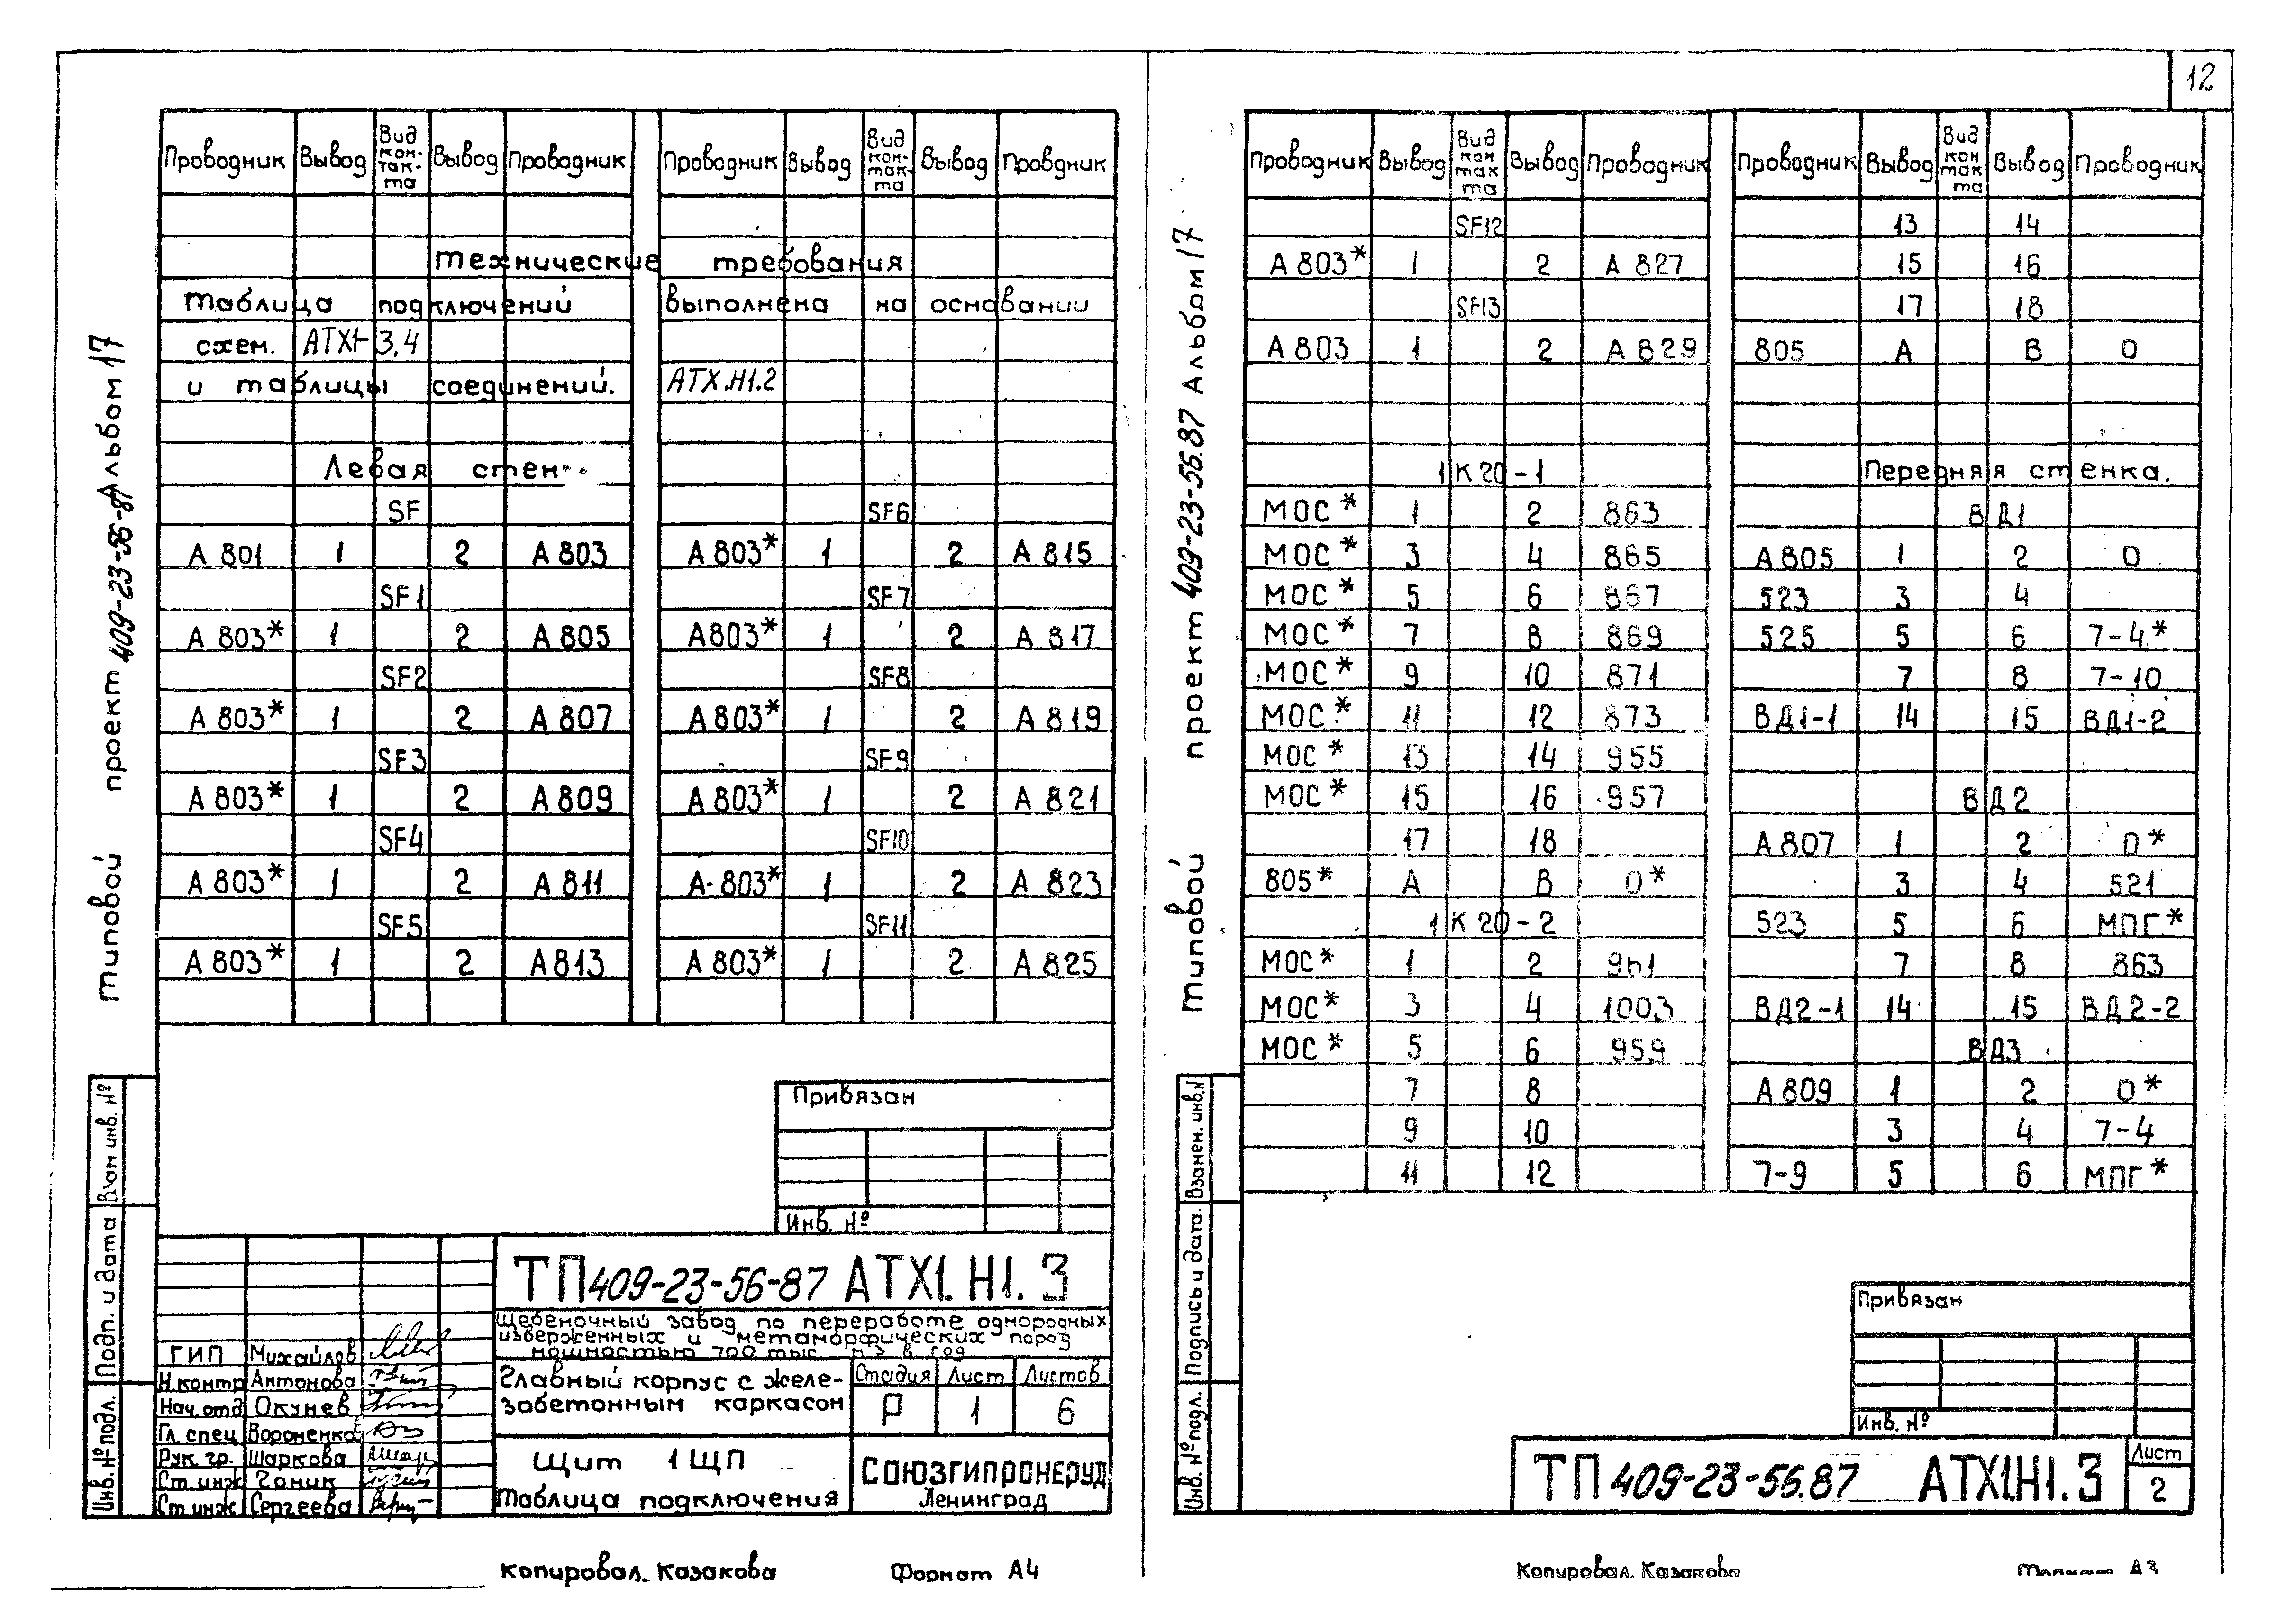 12
типовой проект 409-23-56-87 Альбом 17
Проводник Вывод Вид кон-так-та Вывод Проводник Проводник Вывод Вид кон-так-та Вывод Проводник
технические требования
таблица подключений выполнена на основании
схем. АТХ1-3,4
и таблицы соединений. АТХ.Н1.2
Левая стен
SF SF6
А 801 1 2 А 803 А 803* 1 2 А 815
SF1 SF7
А 803* 1 2 А 805 А803* 1 2 А 817
SF2 SF8
А 803* 1 2 А 807 А 803* 1 2 А 819
SF3 SF9
А 803* 1 2 А 809 А 803* 1 2 А 821
SF4 SF10
А 803* 1 2 А 811 А 803* 1 2 А 823
SF5 SF11
А 803* 1 2 А813 А 803* 1 2 А 825
Привязан
Инв. №
Инв. № подл. Подп. и дата Взам инв. №
ТП 409-23-56-87 АТХ1.Н1.3
Щебеночный завод по переработе однородных
изверженных и метаморфических пород
мощностью 700 тыс. м3 в год
ГИП Михайлов
Н.контр Антонова
Нач.отд Окунев
Гл. спец Вороненко
Рук. гр. Шаркова
Ст. инж Гоник
Ст. инж Сергеева
Главный корпус с желе-
зобетонным каркасом
Стадия Лист Листов
Р 1 6
Щит 1ЩП
Таблица подключения
СОЮЗГИПРОНЕРУД
Ленинград
Копировал. Казакова Формат А4
типовой проект 409-23-56.87 Альбом 17
Проводник Вывод Вид кон так та Вывод Проводник Проводник Вывод Вид кон так та Вывод Проводник
SF12 13 14
А 803* 1 2 А 827 15 16
SF13 17 18
А 803 1 2 А 829 805 А В 0
1К20-1 Передняя стенка.
МОС* 1 2 863 ВД1
МОС* 3 4 865 А805 1 2 0
МОС* 5 6 867 523 3 4
МОС* 7 8 869 525 5 6 7-4*
МОС* 9 10 871 7 8 7-10
МОС* 11 12 873 ВД1-1 14 15 ВД1-2
МОС* 13 14 955
МОС* 15 16 957 ВД2
17 18 А 807 1 2 0*
805* А В 0* 3 4 521
1К20-2 523 5 6 МПГ*
МОС* 1 2 961 7 8 863
МОС* 3 4 1003 ВД2-1 14 15 ВД2-2
МОС* 5 6 959 ВД3
7 8 А 809 1 2 0*
9 10 3 4 7-4
11 12 7-9 5 6 МПГ*
Привязан
Инв. №
Инв. № подл. Подпись и дата. Взамен. инв.№
ТП 409-23-56.87 АТХ1.Н1.3
Лист
2
Копировал. Казакова Формат А3